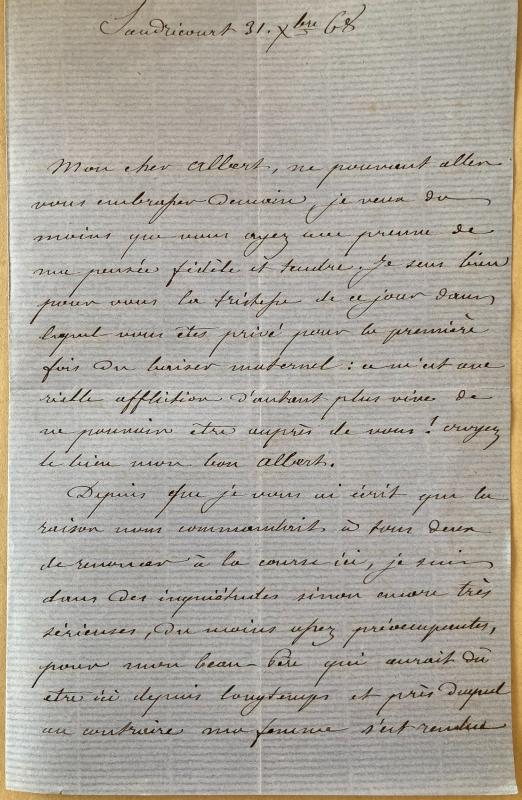 Sandricourt 31. Xbre 68
Mon cher Albert, ne pouvant aller
vous embrasser demain, je veux du
moins que vous ayez une preuve de
ma pensée fidèle et tendre. Je sens bien
pour vous la tristesse de ce jour dans
lequel vous êtes privé pour la première
fois du baiser maternel : ce m'est une
réelle affliction d'autant plus vive de
ne pouvoir être auprès de vous ! croyez
le bien mon bon Albert.
Depuis que je vous ai écrit que la
raison nous commandait à tous deux
de renoncer à la course ici, je suis
dans des inquiétudes sinon encore très
sérieuses, du moins assez préoccupantes,
pour mon beau-père qui aurait dû
être ici depuis longtemps et près duquel
au contraire ma femme s'est rendue